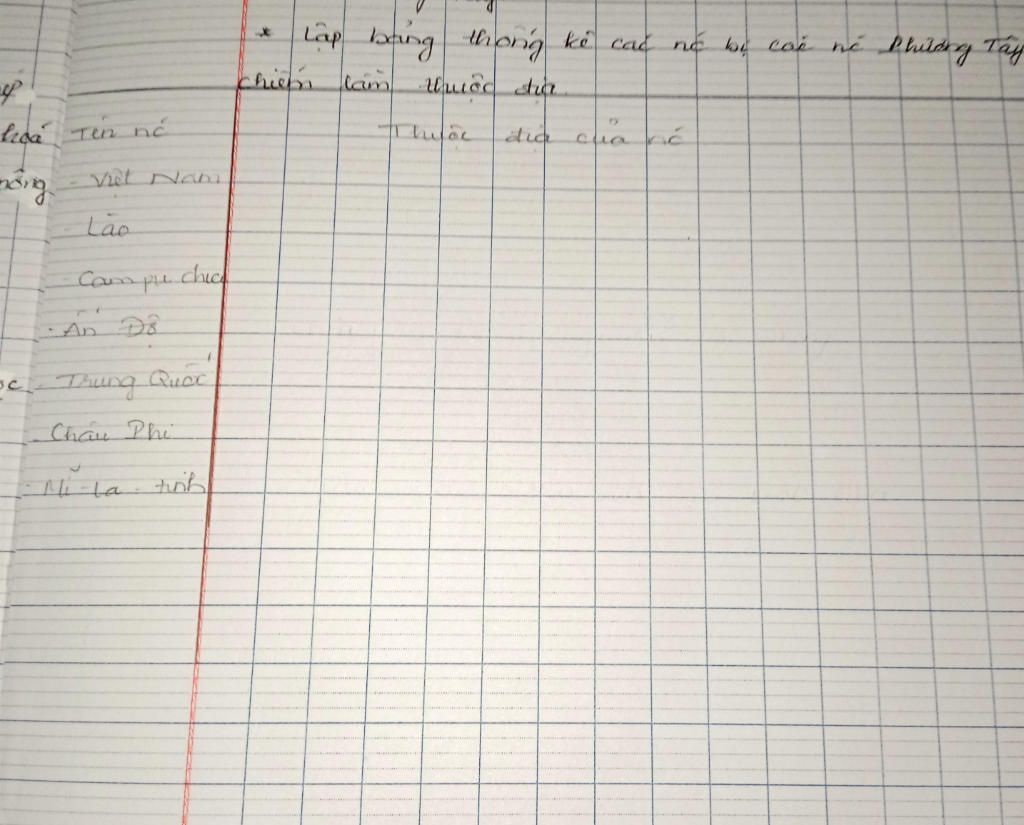 * Lập bảng thống kê các nc bị các nc Phương Tây
chiếm làm thuộc địa.
hoá Tên nc Thuộc địa của nc
- Việt Nam
Lào
- Cam pu chia
- Ấn Độ
- Trung Quốc
Châu Phi
- Mĩ - La - tinh